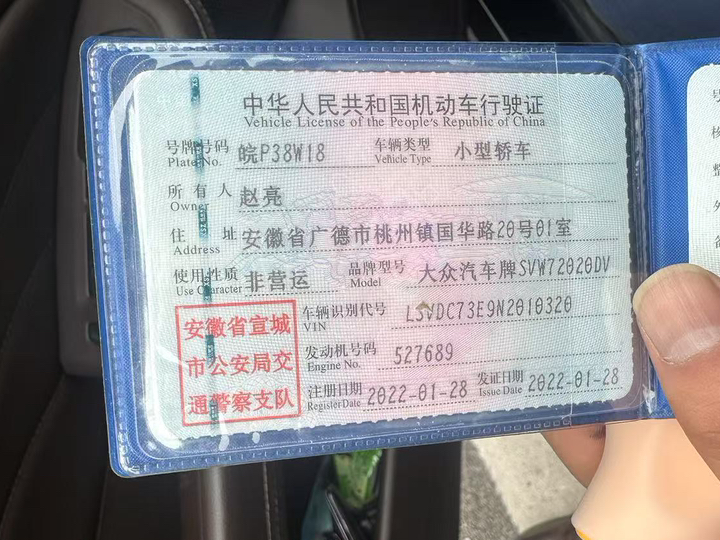 中华人民共和国机动车行驶证
Vehicle License of the People's Republic of China
号牌号码 皖P38W18 车辆类型 小型轿车
Plate No. Vehicle Type
所有人 赵亮
Owner
住址 安徽省广德市桃州镇国华路20号01室
Address
使用性质 非营运 品牌型号 大众汽车牌SVW72020DV
Use Character Model
安徽省宣城
市公安局交
通警察支队
车辆识别代号 LSVDC73E9N2010320
VIN
发动机号码 527689
Engine No.
注册日期 2022-01-28 发证日期 2022-01-28
Register Date Issue Date